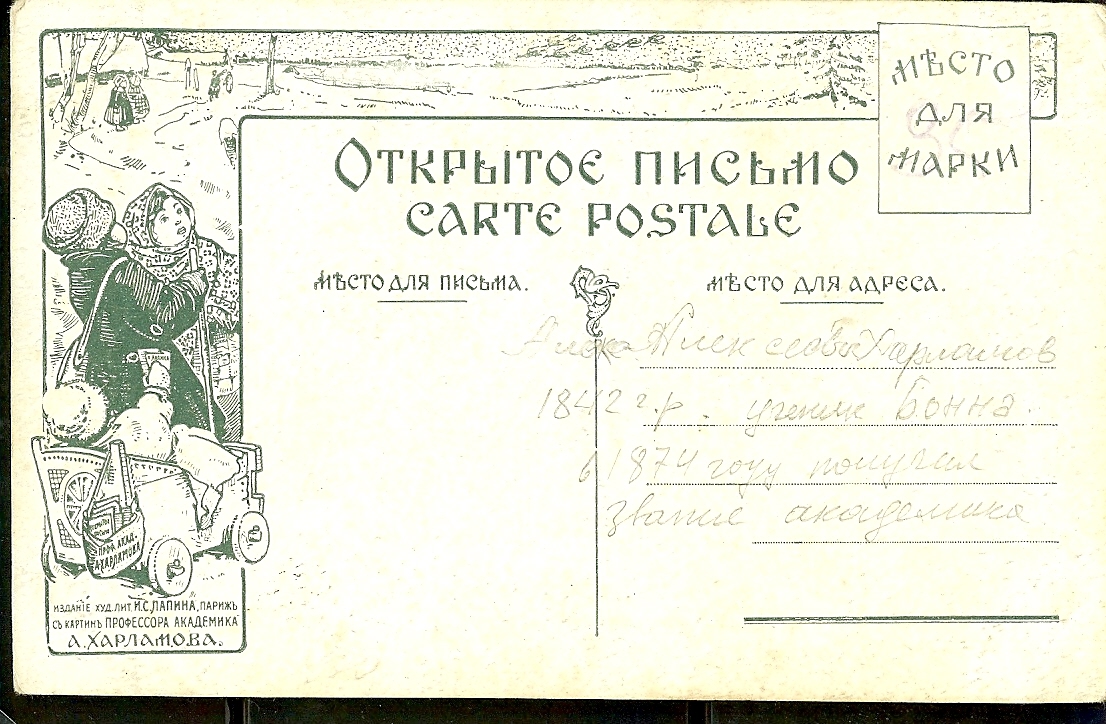 МѢСТО
ДЛЯ
МАРКИ
ОТКРЫТОЕ ПИСЬМО
CARTE POSTALE
МѢСТО ДЛЯ ПИСЬМА.
МѢСТО ДЛЯ АДРЕСА.
Алексеевич Харламов
1842 г.р. ученик Бонна.
в 1874 году получил
звание академика
ПРОФ. АКАД.
А. ХАРЛАМОВА
ИЗДАНІЕ ХУД. ЛИТ. И.С. ЛАПИНА, ПАРИЖЪ
СЪ КАРТИНЪ ПРОФЕССОРА АКАДЕМИКА
А. ХАРЛАМОВА.